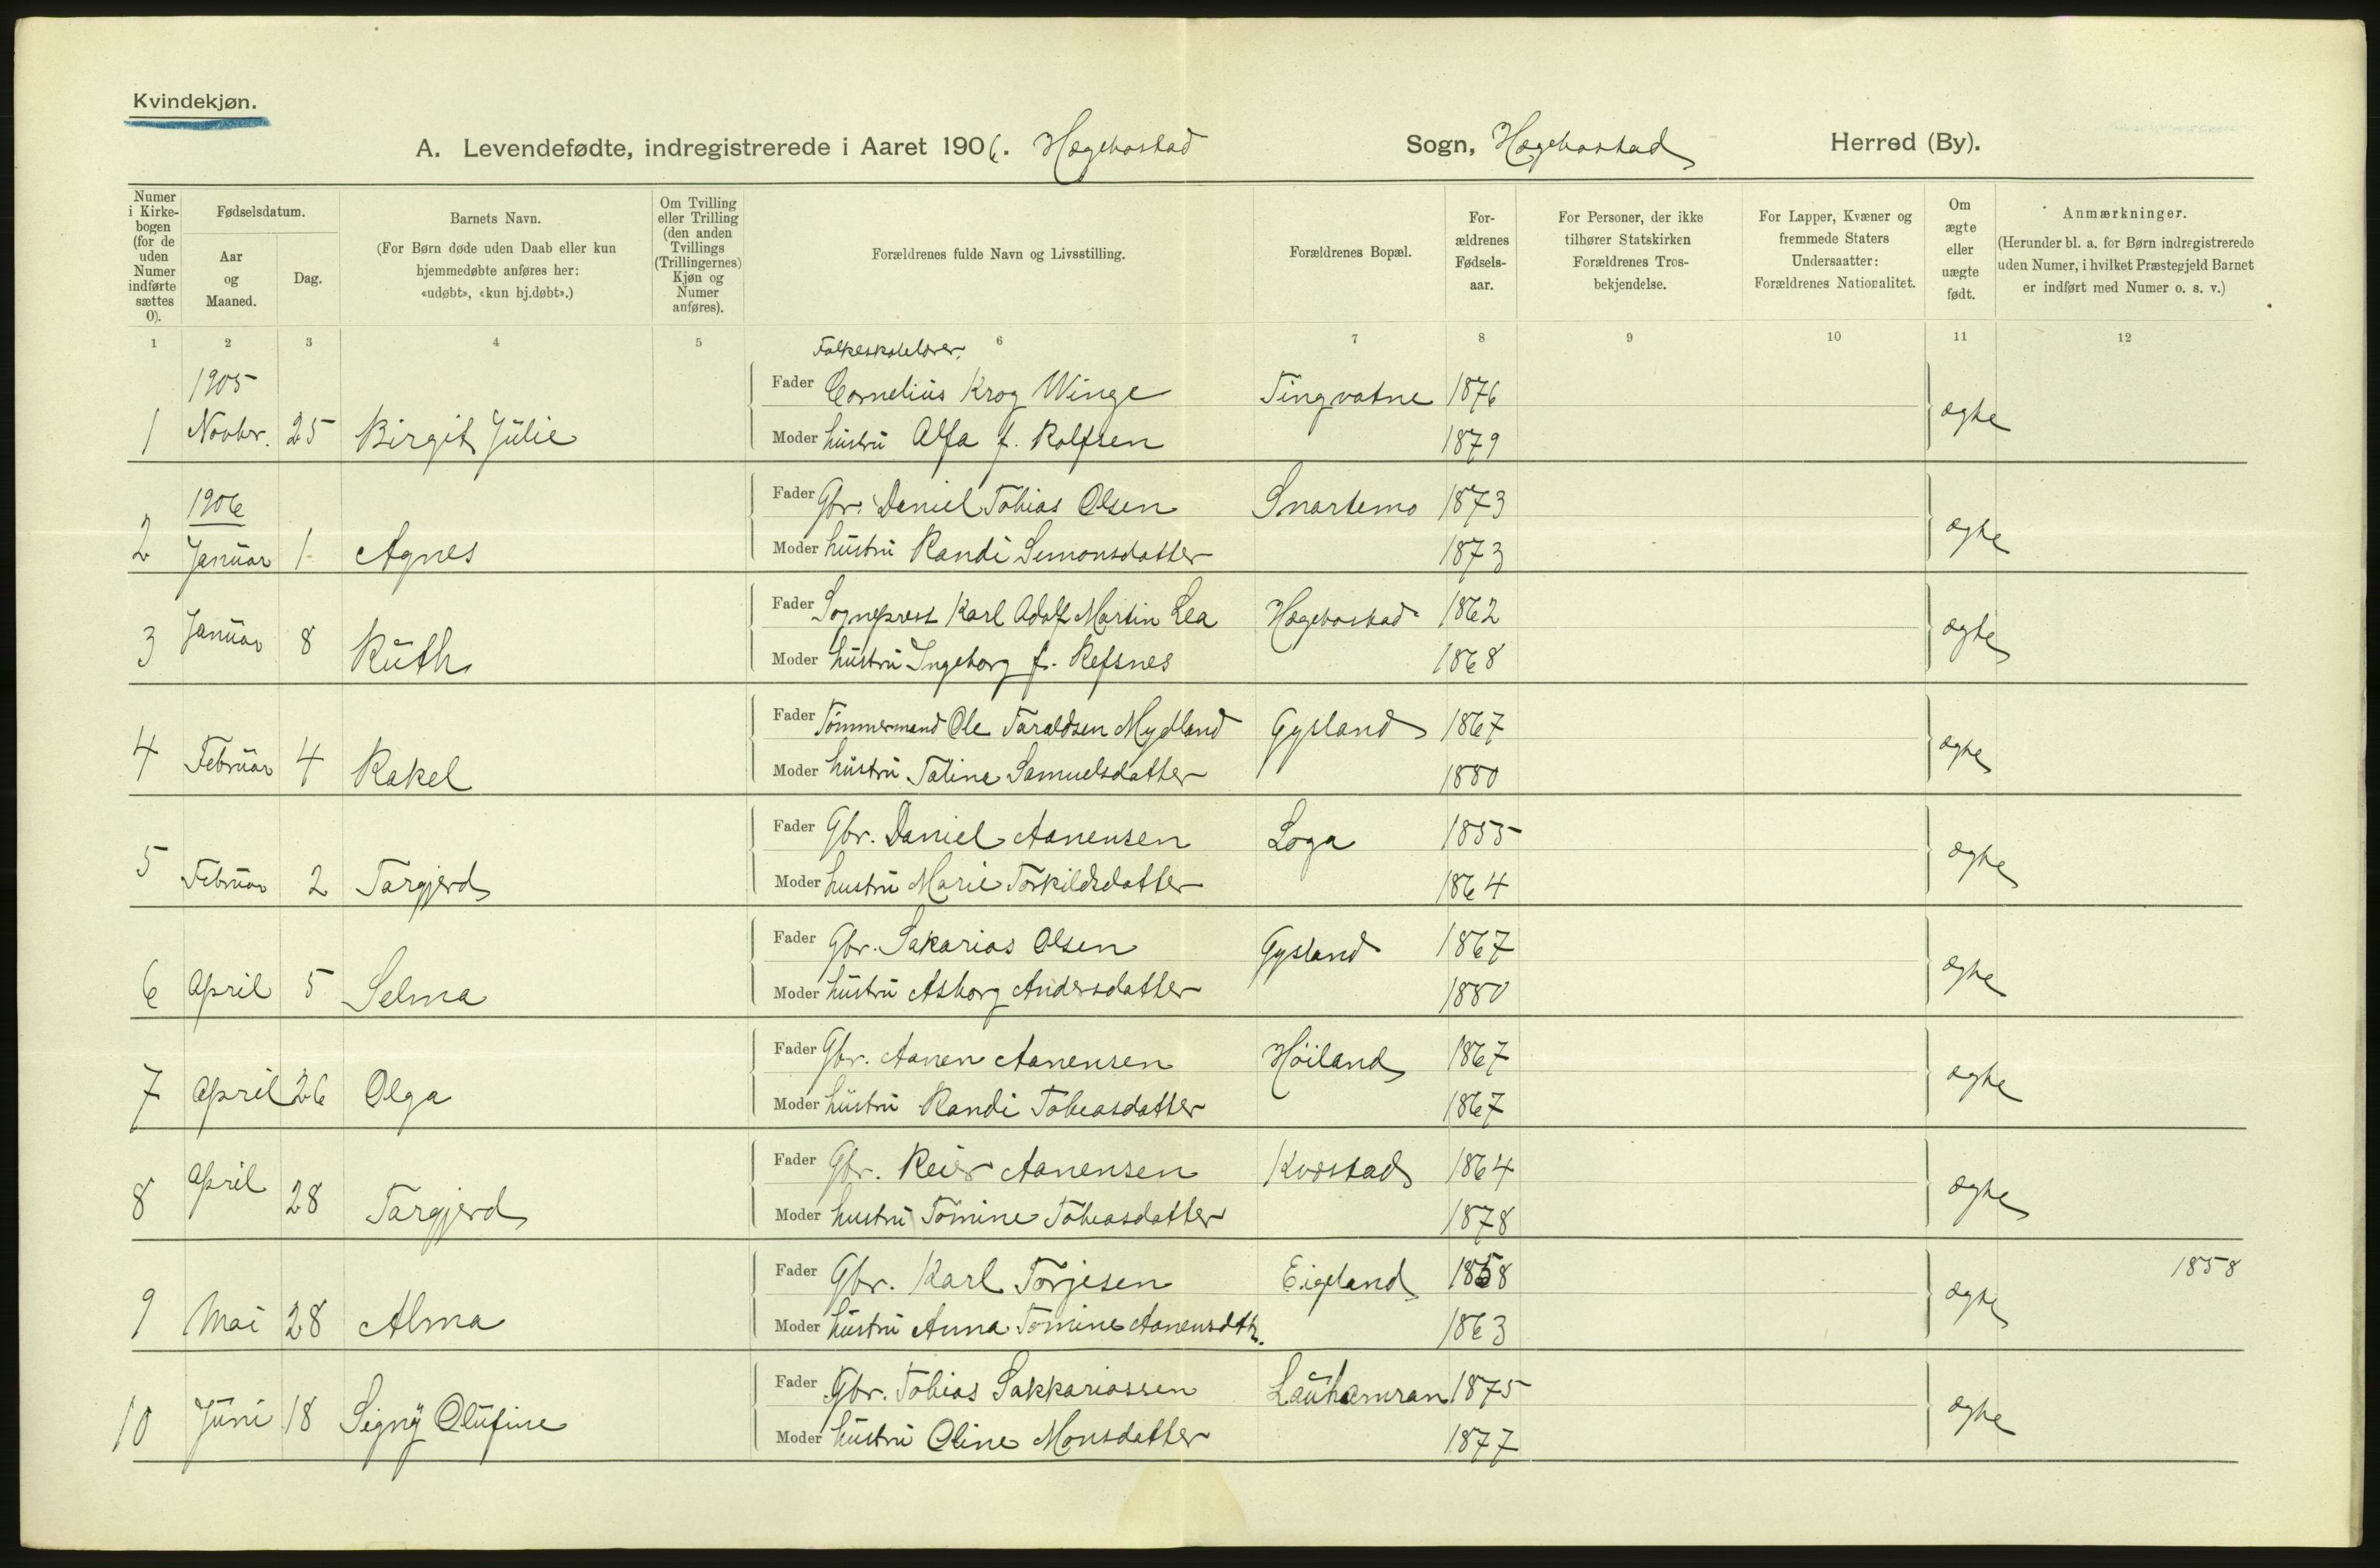 Kvindekjøn.
A. Levendefødte, indregistrerede i Aaret 1906. Hægebostad Sogn, Hægebostad Herred (By).
Numer i Kirkebogen (for de uden Numer indførte sættes 0).
Fødselsdatum.
Aar og Maaned.
Dag.
Barnets Navn.
(For Børn døde uden Daab eller kun hjemmedøbte anføres her: «udøbt», «kun hj.døbt».)
Om Tvilling eller Trilling (den anden Tvillings (Trillingernes) Kjøn og Numer anføres).
Forældrenes fulde Navn og Livsstilling.
Forældrenes Bopæl.
Forældrenes Fødselsaar.
For Personer, der ikke tilhører Statskirken Forældrenes Trosbekjendelse.
For Lapper, Kvæner og fremmede Staters Undersaatter: Forældrenes Nationalitet.
Om ægte eller uægte født.
Anmærkninger.
(Herunder bl. a. for Børn indregistrerede uden Numer, i hvilket Præstegjeld Barnet er indført med Numer o. s. v.)
1 2 3 4 5 6 7 8 9 10 11 12
Folkeskolelærer.
1905
Fader Cornelius Krog Winge Tingvatne 1876
1 Novbr. 25 Birgit Julie Moder hustru Alfa f. Rolfsen 1879 ægte
1906
Fader Gbr. Daniel Tobias Olsen Snartemo 1873
2 Januar 1 Agnes Moder hustru Randi Simonsdatter 1873 ægte
Fader Sogneprest Karl Adolf Martin Lea Hægebostad 1862
3 Januar 8 Ruth Moder hustru Ingeborg f. Refsnes 1868 ægte
Fader Tømmermand Ole Taraldsen Mydland Gysland 1867
4 Februar 4 Rakel Moder hustru Taline Samuelsdatter 1880 ægte
Fader Gbr. Daniel Aanensen Loga 1855
5 Februar 2 Targjerd Moder hustru Marie Torkildsdatter 1864 ægte
Fader Gbr. Sakarias Olsen Gysland 1867
6 April 5 Selma Moder hustru Asborg Andersdatter 1880 ægte
Fader Gbr. Aanen Aanensen Høiland 1867
7 April 26 Olga Moder hustru Randi Tobiasdatter 1867 ægte
Fader Gbr. Reier Aanensen Kvæstad 1864
8 April 28 Targjerd Moder hustru Tomine Tobiasdatter 1878 ægte
Fader Gbr. Karl Torjesen Eigeland 1858 1858
9 Mai 28 Alma Moder hustru Anna Tomine Aanensdtr. 1863 ægte
Fader Gbr. Tobias Sakkariassen Lauhamran 1875
10 Juni 18 Signy Olufine Moder hustru Oline Monsdatter 1877 ægte